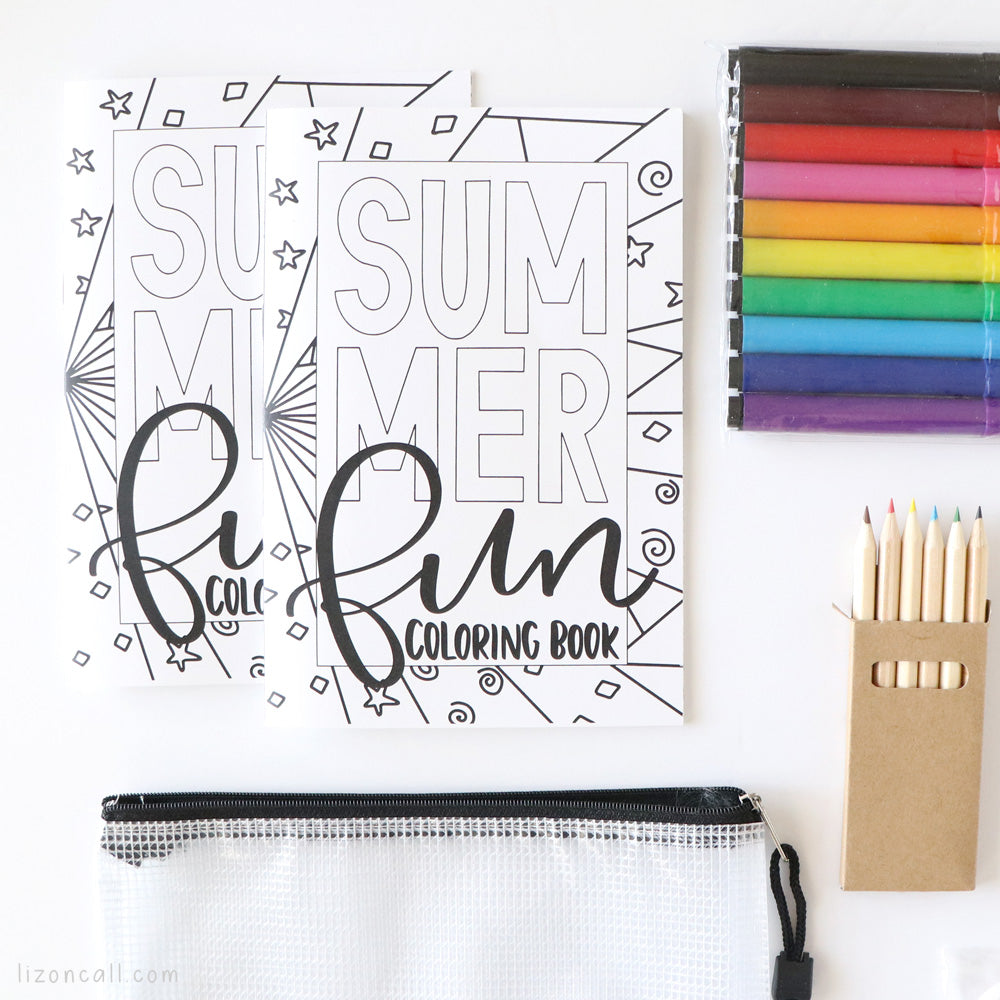 SU
M
fu
COLO
SUM
MER
fun
COLORING BOOK
lizoncall.com